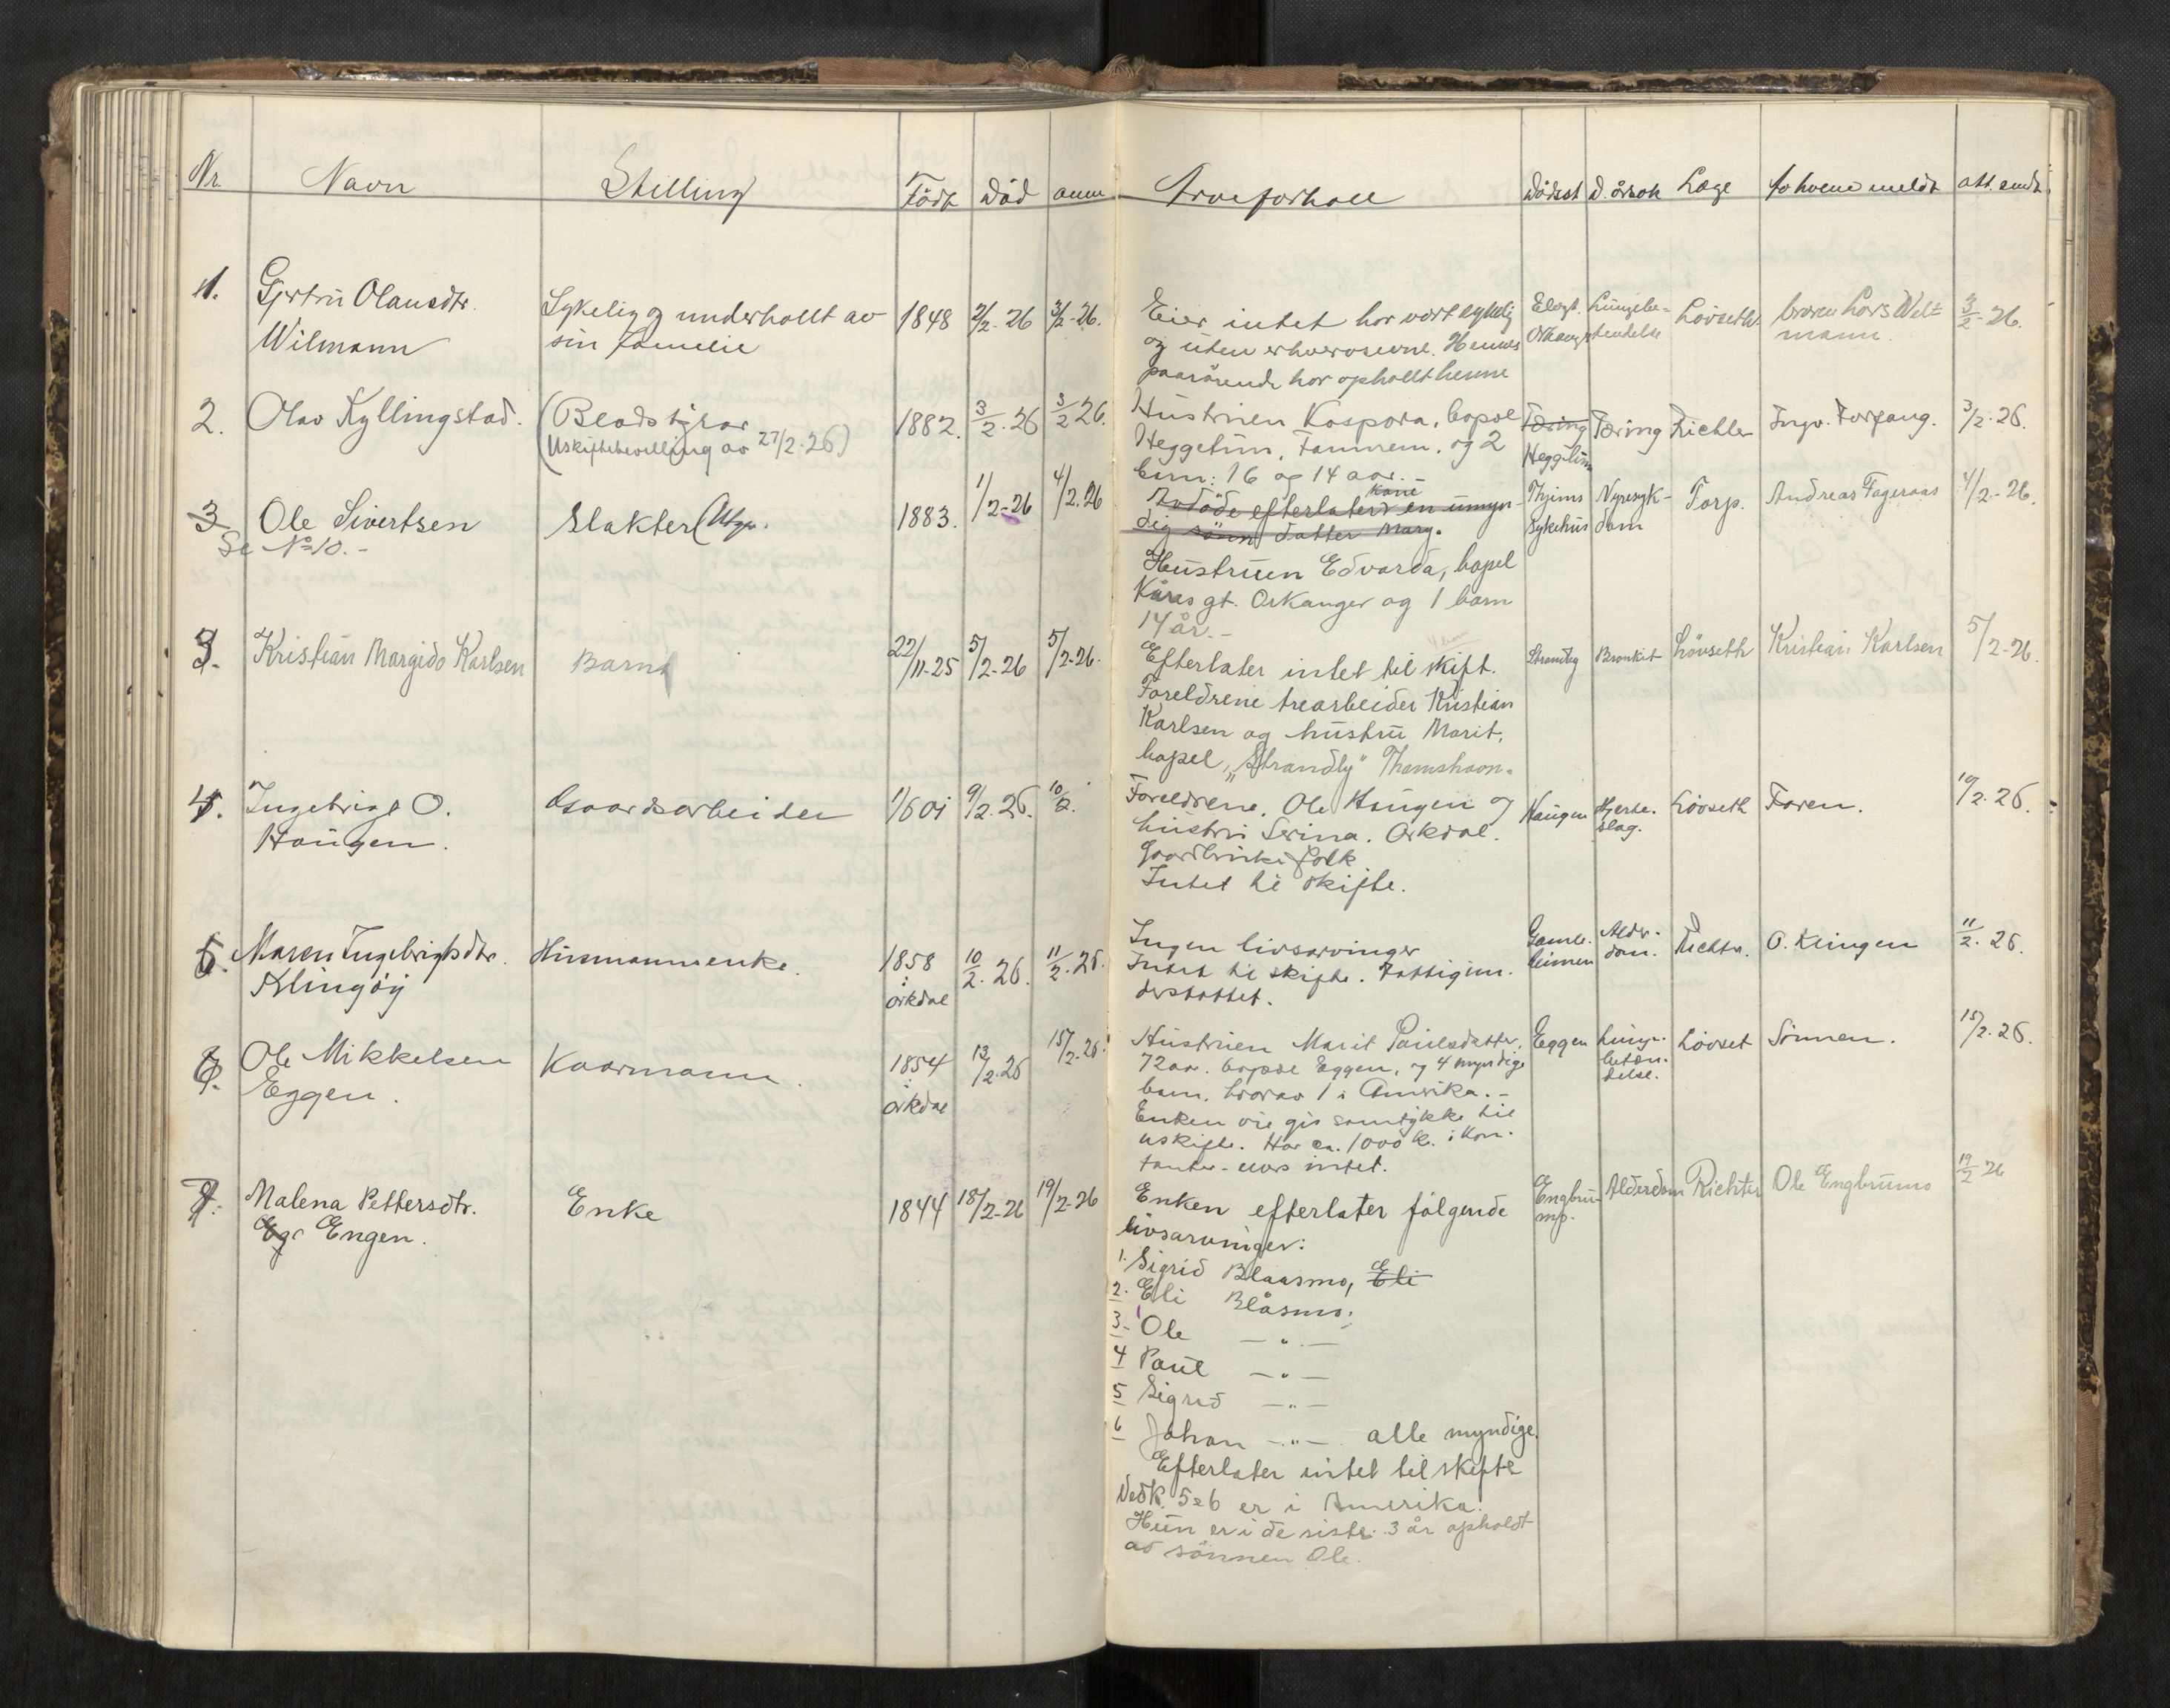 Nr. Navn Stilling Födt Död anm Arveforhold Dödsst D. årsak Læge Av hvem meldt att. sendt.
1. Gjertru Olausdtr. Sykelig og underholdt av 1848 2/2-26 3/2-26. Eier intet har vært sykelig Lungebe- Lövseth broren Lars Wil= 3/2-26.
Wilmann sin familie og uten erhvervsevne. Hennes Orkanger tendelse mann.
paarörende har opholdt henne
2. Olav Kyllingstad. (Bladstyrar 1882. 3/2.26 3/2 26. Hustruen Kaspara, bopæl Tæring Tæring Richter Ingv. Forfang. 3/2.26.
(Uskiftebevilling av 27/2-26) Heggetun, Fannrem, og 2 Heggetun
barn: 16 og 14 aar.-
3 Ole Sivertsen Slakter 1883. 1/2-26 4/2.26 Avdöde efterlater kone en umyn- Thjems Nyresyk- Torp. Andreas Fageraas 4/2-26.
Se No 10.- dig sönn datter Marg. Sykehus dom
Hustruen Edvarda, bopel
Kåres gt. Orkanger og 1 barn
14 år.-
3. Kristian Margido Karlsen Barn 22/11-25 5/2-26 5/2-26. Efterlater intet til skift. Strandly Bronkit Lövseth Kristian Karlsen 5/2-26.
Foreldrene trearbeider Kristian
Karlsen og hustru Marit,
bopel, "Strandly" Thamshavn.
4. Ingebrigt O. Gaardsarbeider 1/6 01 9/2.26. 10/2. Foreldrene, Ole Haugen og Haugen Hjerte- Lövseth Faren. 10/2.26.
Haugen. hustru Serina. Orkdal. slag.
Gaardbrukerfolk
Intet til skifte.
5. Maren Ingebrigtsdtr. Husmannsenke. 1858 10/2.26. 11/2.26. Ingen livsarvinger Gamle- Alder- Richter. O. Klingen 11/2.26
Klingöy i Orkdal Intet til skifte. Fattigun- heimen dom.
derstöttet.
6. Ole Mikkelsen Kaarmann. 1854 13/2.26 15/2.26. Hustruen Marit Paulsdatter, Eggen Lunge- Lövset Sönnen. 15/2.26.
Eggen. i Orkdal 72 aar. bopæl Eggen, og 4 myndige betæn-
barn, hvorav 1 i Amerika.- delse.
Enken vil gis samtykke til
uskifte. Har ca. 1000 k. i kon-
tanter - ellers intet.
7. Malena Pettersdtr. Enke 1844 18/2-26 19/2-26 Enken efterlater fölgende Engbru- Alderdom Richter Ole Engbrumo 19/2-26
Engen. livsarvinger: mo.
1. Sigrid Blaasmo, Eli
2. Eli Blåsmo,
3- Ole -"-
4 Paul -"-
5 Sigrid -"-
6 Johan -"- alle myndige.
Efterlater intet til skifte
Vedk. 5 & 6 er i Amerika.
Hun er i de siste 3 år opholdt
av sönnen Ole.